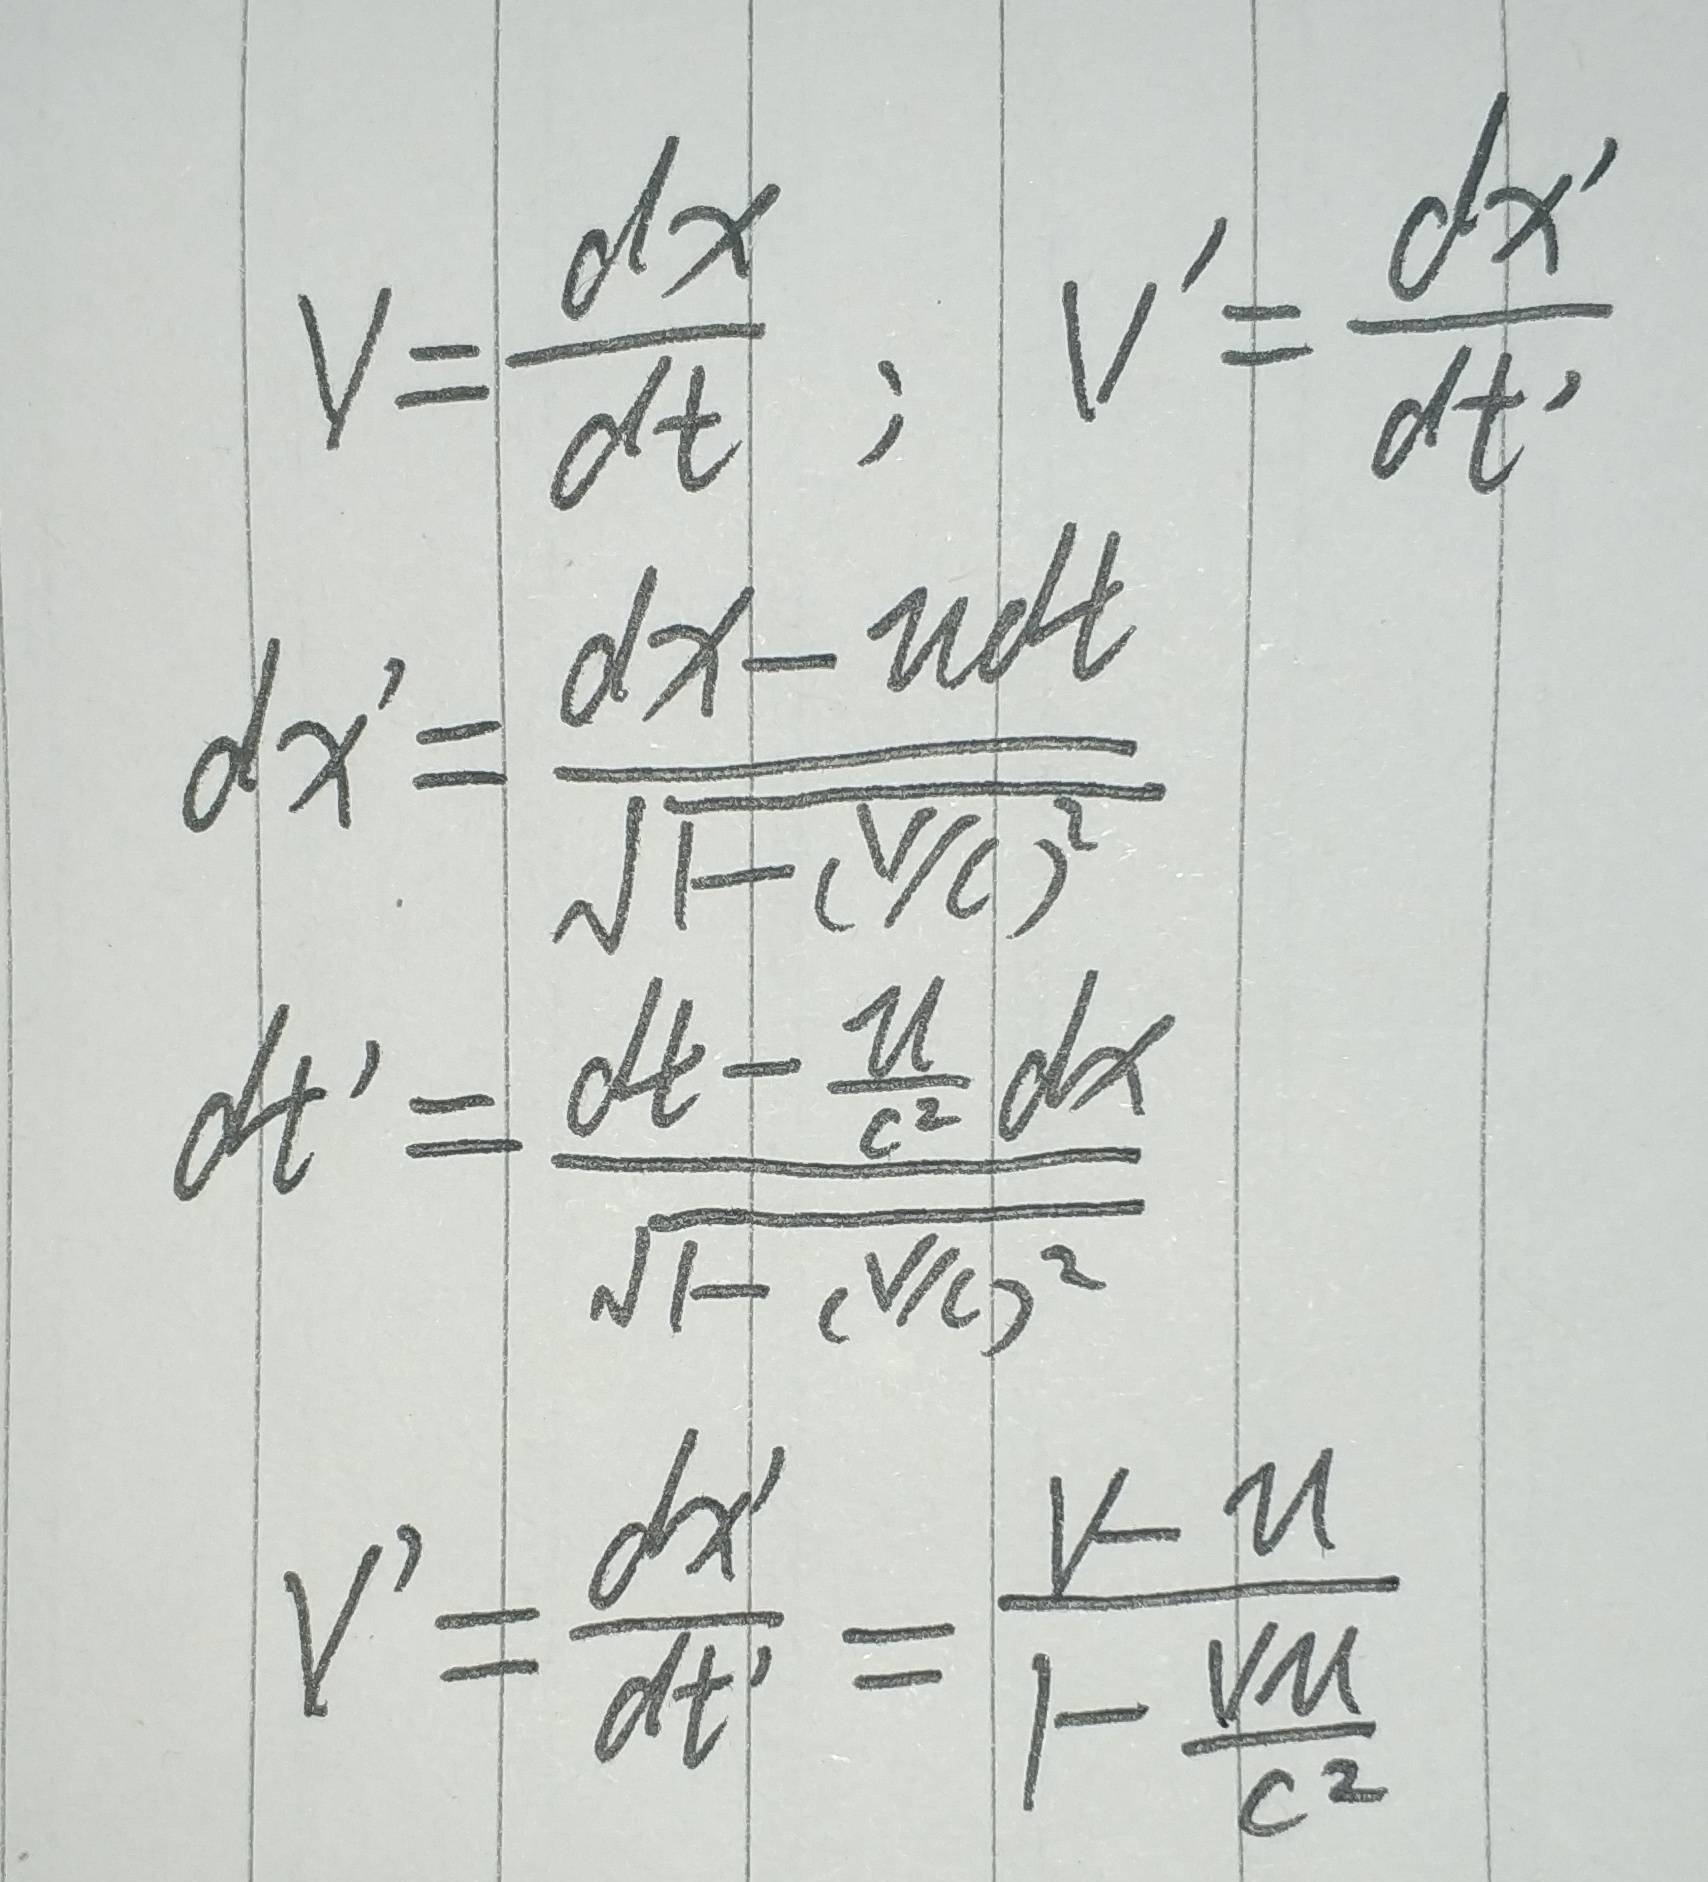 V = dx/dt ; V' = dx'/dt'
dx' = (dx - udt)/√(1 - (V/C)²)
dt' = (dt - u/c² dx)/√(1 - (V/C)²)
V' = dx'/dt' = (V - u)/(1 - Vu/c²)